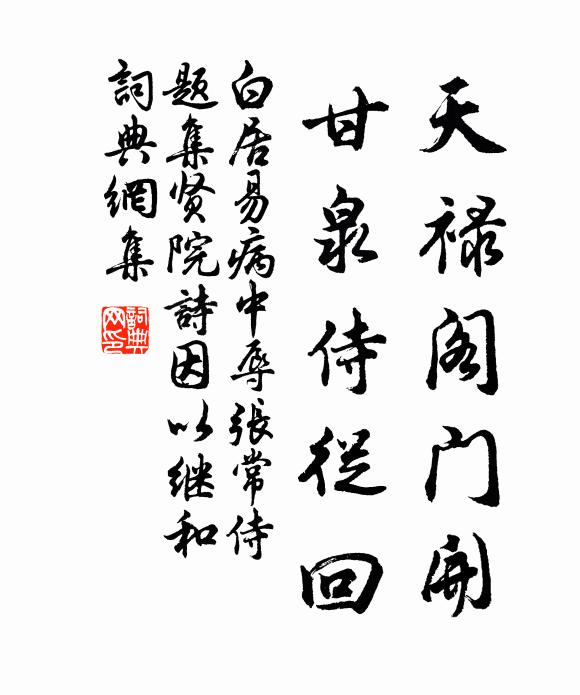 天禄阁门開
甘泉侍從回
白居易病中辱張常侍
題集贤院詩因以继和
詞典網集
詞典
网印